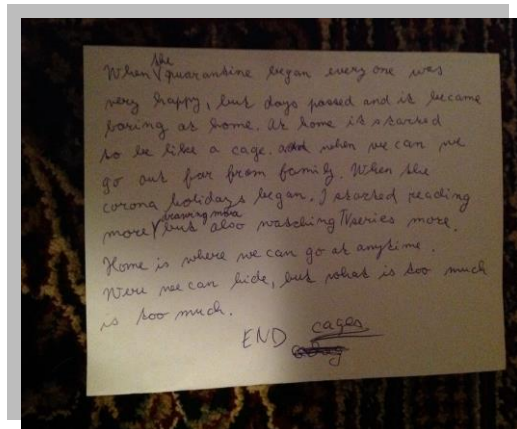 When the quarantine began every one was
very happy, but days passed and it became
boring at home. At home it started
to be like a cage. and when we can we
go out far from family. When the
corona holidays began. I started reading
more drawing more but also watching TV series more.
Home is where we can go at anytime.
Were we can hide, but what is too much
is too much.
END cages